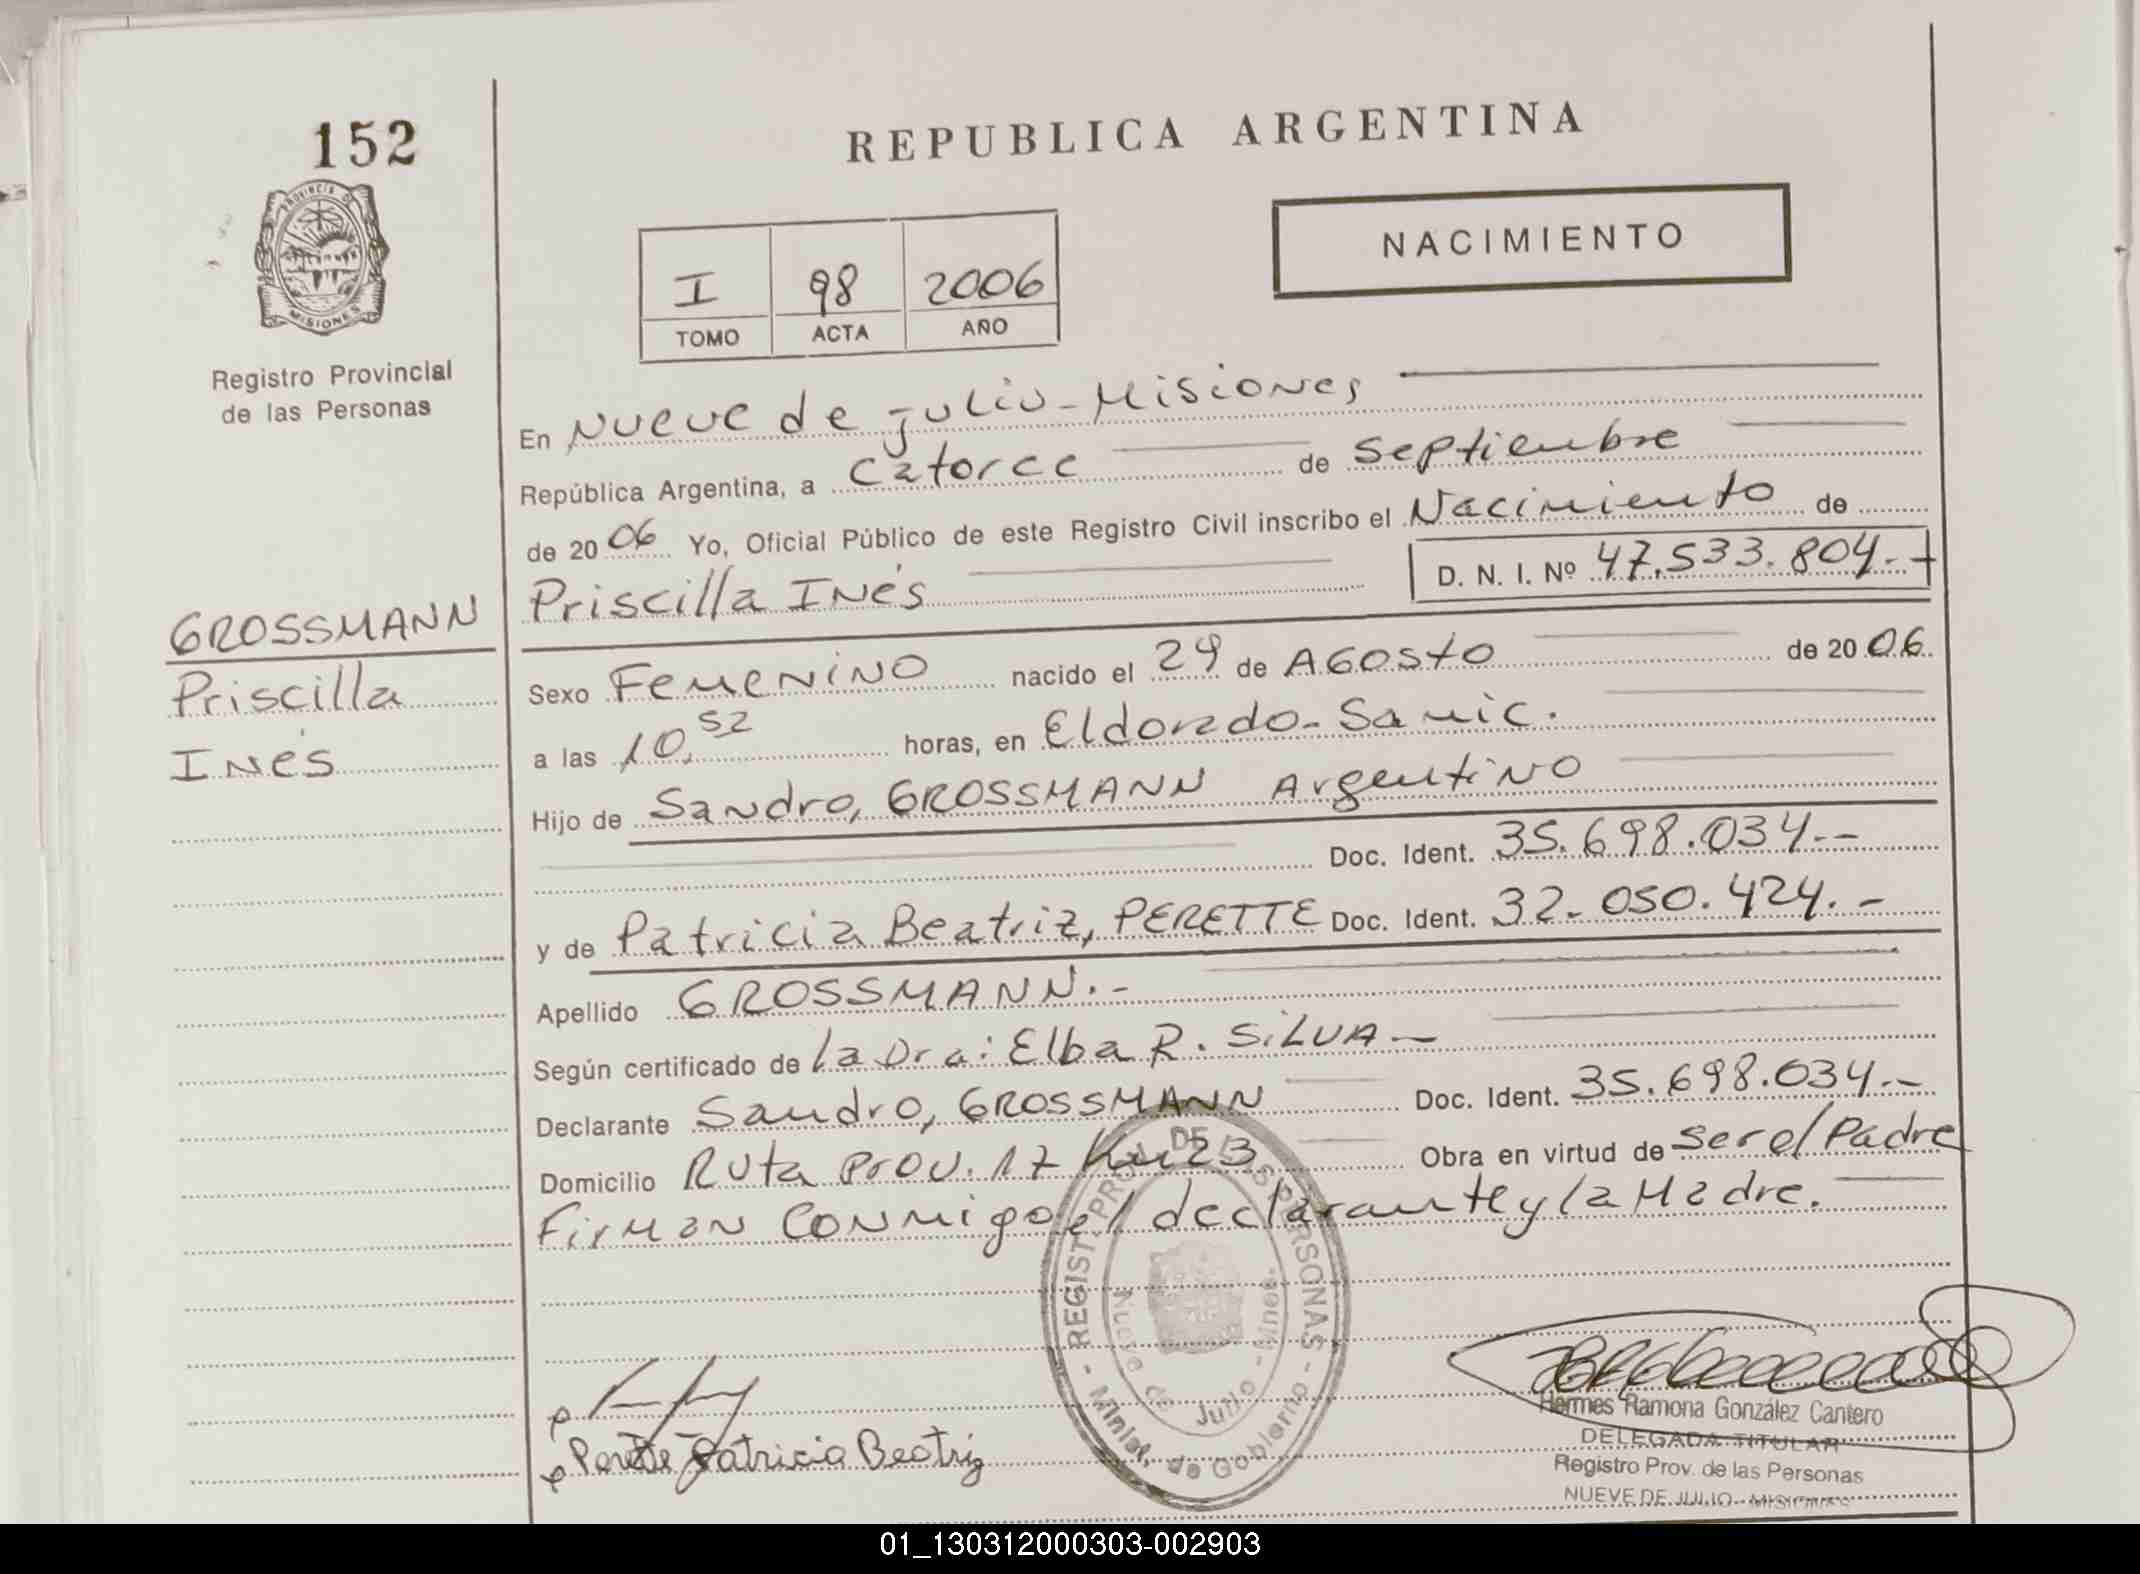 152
PROVINCIA DE
MISIONES
Registro Provincial
de las Personas
GROSSMANN
Priscilla
Inés
REPUBLICA ARGENTINA
NACIMIENTO
I 98 2006
TOMO ACTA AÑO
En Nueve de Julio - Misiones
República Argentina, a Catorce de Septiembre
de 2006 Yo, Oficial Público de este Registro Civil inscribo el Nacimiento de
Priscilla Inés D. N. I. Nº 47.533.804.-
Sexo Femenino nacido el 29 de Agosto de 2006
a las 10,52 horas, en Eldorado - Samic.
Hijo de Sandro, GROSSMANN Argentino
Doc. Ident. 35.698.034.--
y de Patricia Beatriz, PERETTE Doc. Ident. 32.050.424.-
Apellido GROSSMANN.-
Según certificado de la Dra: Elba R. SILVA -
Declarante Sandro, GROSSMANN Doc. Ident. 35.698.034.--
Domicilio Ruta Prov. 17 Km 23 Obra en virtud de ser el Padre
Firman conmigo el declarante y la Madre.
REGIST. PROV. DE LAS PERSONAS - Minist. de Gobierno -
Nueve de Julio - Mnes.
Perette Patricia Beatriz
Hermes Ramona González Cantero
DELEGADA TITULAR
Registro Prov. de las Personas
NUEVE DE JULIO - MISIONES
01_130312000303-002903